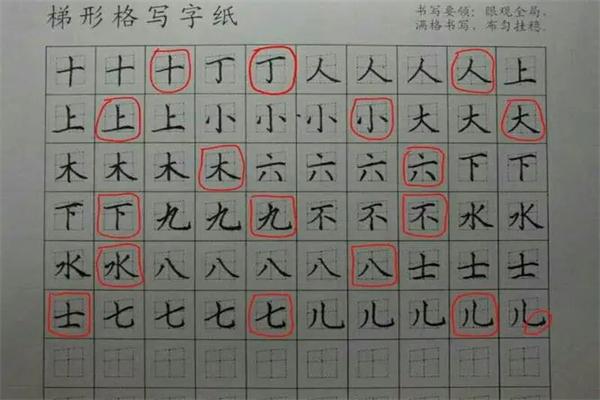 梯形格写字纸
书写要领：眼观全局，
满格书写，布匀挂稳。
十十十丁丁人人人人上
上上上小小小小大大大
木木木木六六六六下下
下下九九九不不不水水
水水八八八八八士士士
士七七七七儿儿儿儿儿